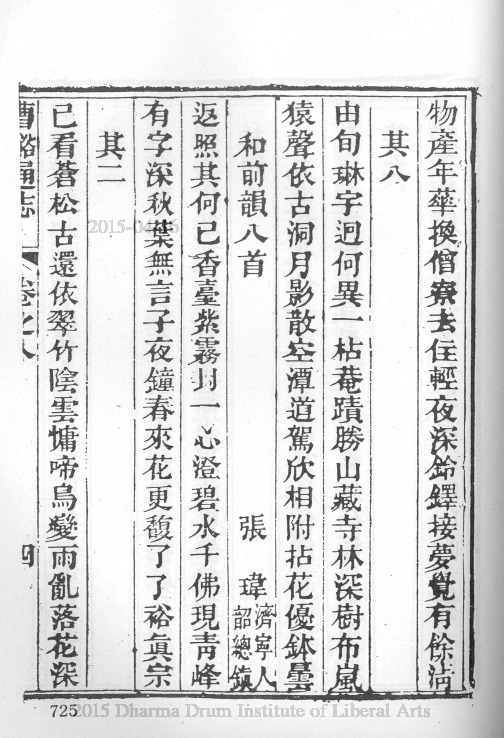 物產年華換僧寮去住輕夜深鈴鐸接夢覺有餘淸
其八
由旬琳宇迥何異一枯菴蹟勝山藏寺林深樹布嵐
猿聲依古洞月影散空潭道駕欣相附拈花優鉢曇
和前韻八首 張瑋 濟寧人韶總鎮
返照其何已香臺紫霧封一心澄碧水千佛現靑峰
有字深秋葉無言子夜鐘春來花更馥了了裕眞宗
其二
已看蒼松古還依翠竹陰雲慵啼鳥變雨亂落花深
曹谿通志 卷之八 四
2015-04-16
725
2015 Dharma Drum Institute of Liberal Arts